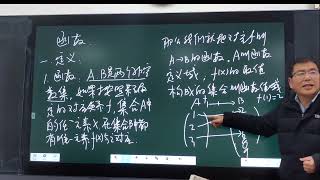 函数
一. 定义
1. 函数: A、B是两个非空
数集, 如果按照某种确
定的对应关系f, 集合A中
的任一元素x, 在集合B中都
有唯一元素f(x)与之对应
那么我们就把对应关系f叫
A→B的函数, A叫函数
定义域, f(x)的取值
构成的集合叫函数值域
A f B f(1)=2
1
2
3